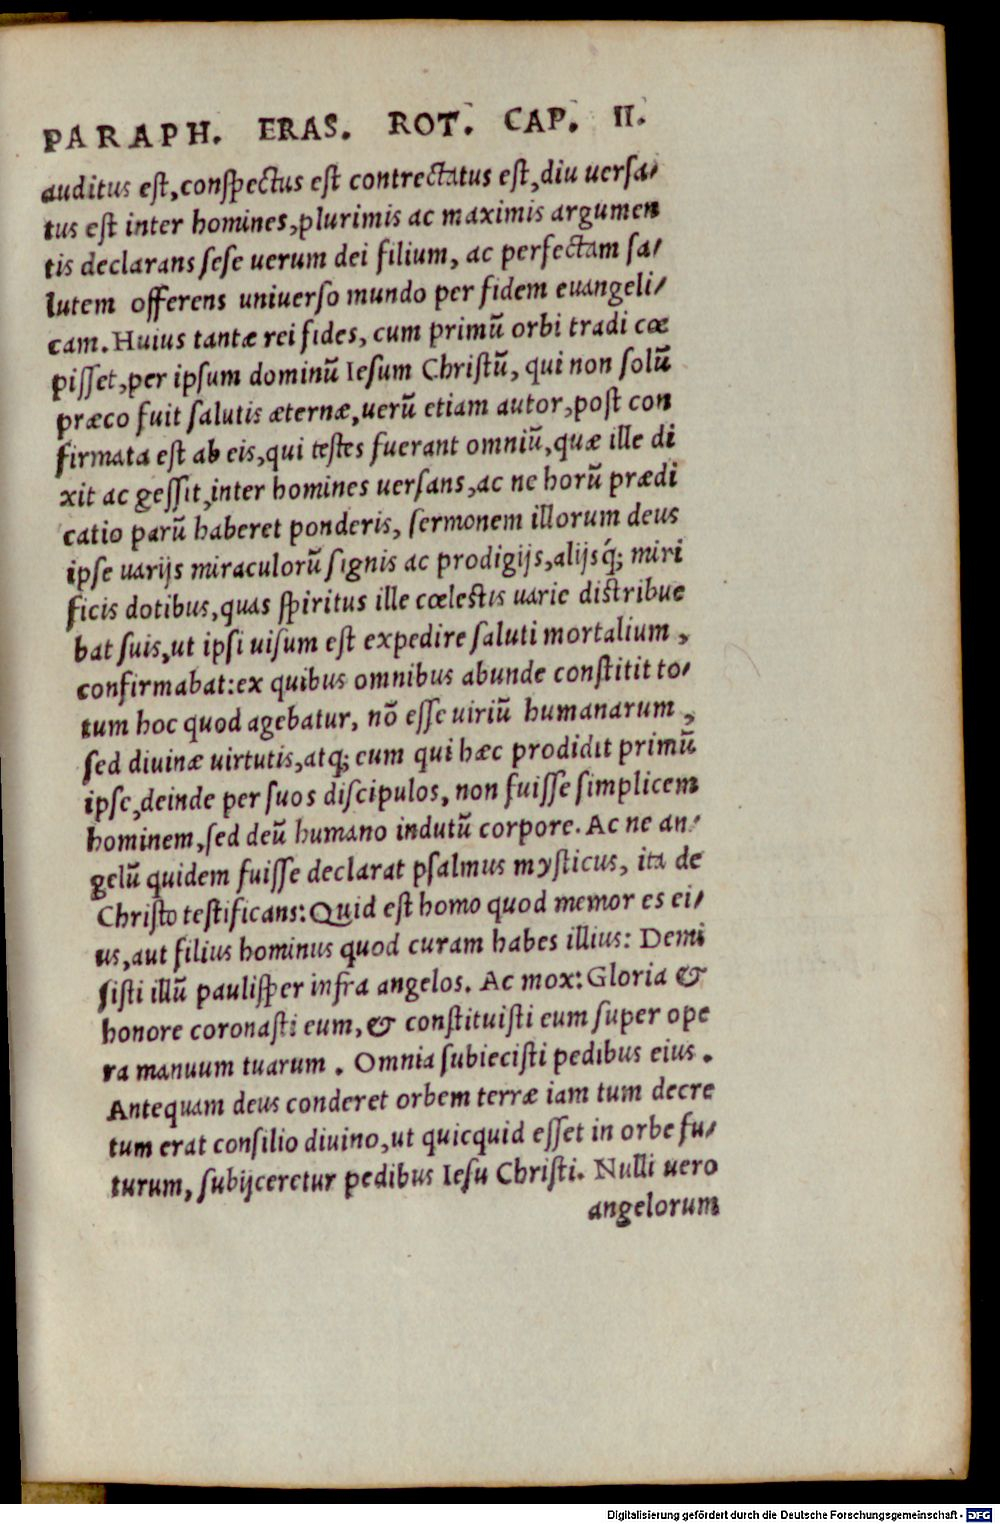 PARAPH. ERAS. ROT. CAP. II.
auditus est, conspectus est contrectatus est, diu uersa/
tus est inter homines, plurimis ac maximis argumen
tis declarans sese uerum dei filium, ac perfectam sa/
lutem offerens uniuerso mundo per fidem euangeli/
cam. Huius tantæ rei fides, cum primũ orbi tradi cœ
pisset, per ipsum dominũ Iesum Christũ, qui non solũ
præco fuit salutis æternæ, uerũ etiam autor, post con
firmata est ab eis, qui testes fuerant omniũ, quæ ille di
xit ac gessit, inter homines uersans, ac ne horũ prædi
catio parũ haberet ponderis, sermonem illorum deus
ipse uarijs miraculorũ signis ac prodigijs, alijsq́; miri
ficis dotibus, quas spiritus ille cœlestis uarie distribue
bat suis, ut ipsi uisum est expedire saluti mortalium,
confirmabat: ex quibus omnibus abunde constitit to/
tum hoc quod agebatur, nõ esse uiriũ humanarum,
sed diuinæ uirtutis, atq; eum qui hæc prodidit primũ
ipse, deinde per suos discipulos, non fuisse simplicem
hominem, sed deũ humano indutũ corpore. Ac ne an/
gelũ quidem fuisse declarat psalmus mysticus, ita de
Christo testificans: Quid est homo quod memor es ei/
us, aut filius hominus quod curam habes illius: Demi
sisti illũ paulisper infra angelos. Ac mox: Gloria &
honore coronasti eum, & constituisti eum super ope
ra manuum tuarum. Omnia subiecisti pedibus eius.
Antequam deus conderet orbem terræ iam tum decre
tum erat consilio diuino, ut quicquid esset in orbe fu/
turum, subijceretur pedibus Iesu Christi. Nulli uero
angelorum
Digitalisierung gefördert durch die Deutsche Forschungsgemeinschaft - DFG